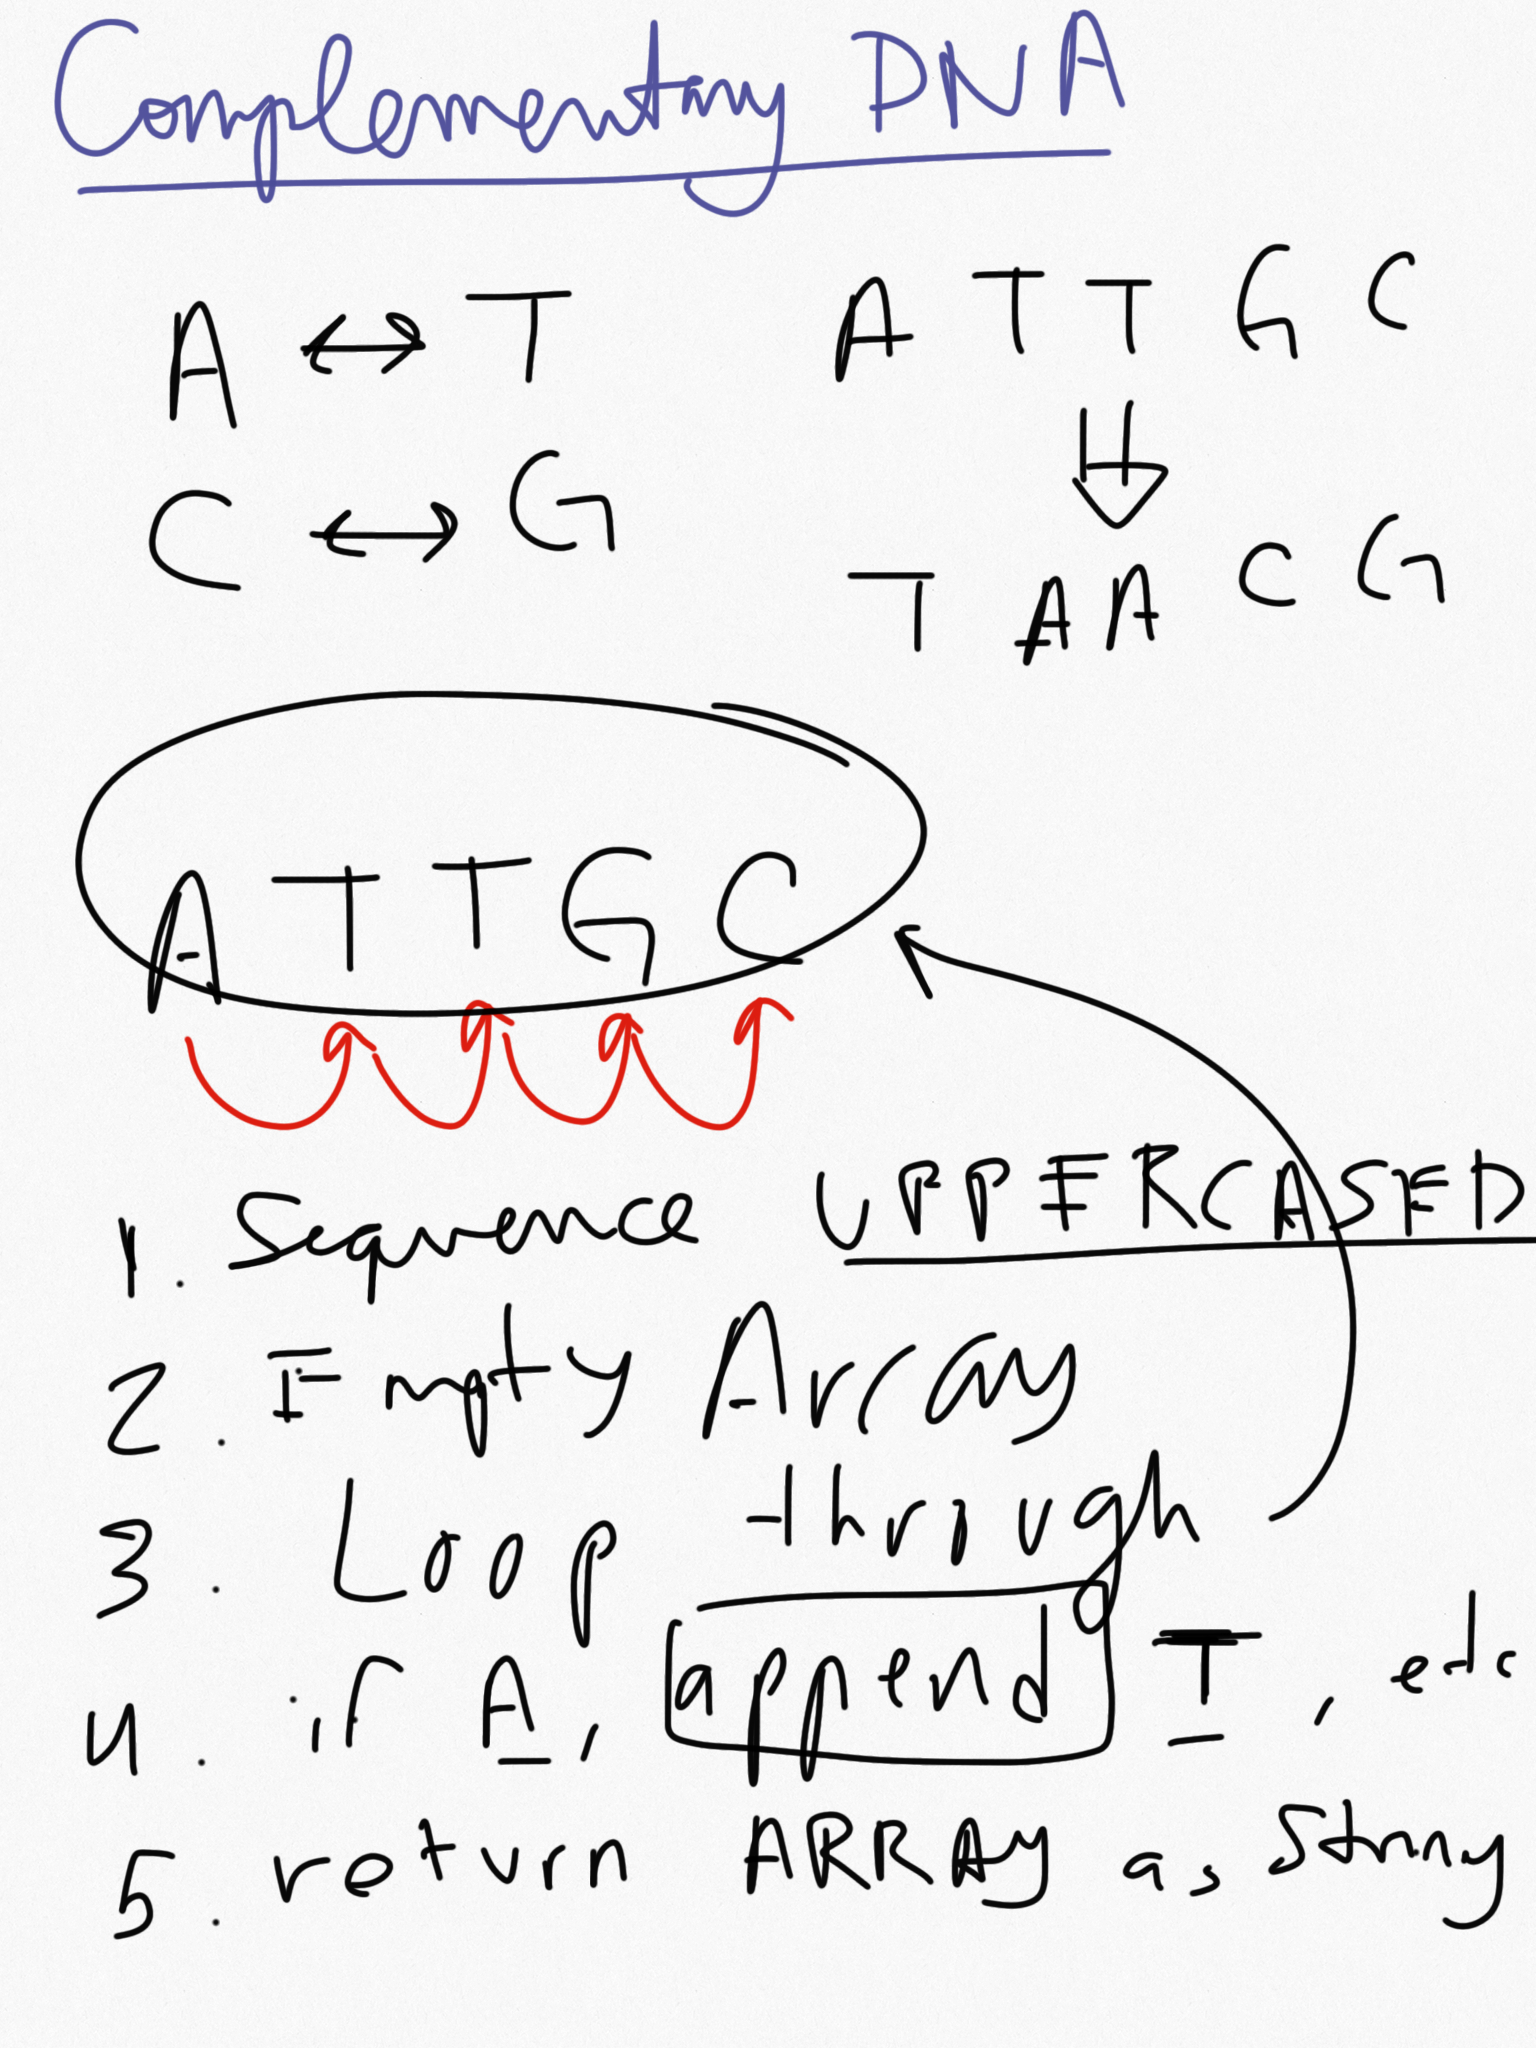 Complementry DNA
A ↔ T
C ↔ G
A T T G C
T A A C G
A T T G C
1. Sequence UPPERCASED
2. Empty Array
3. Loop through
4. if A, append T, etc
5. return ARRAY as String